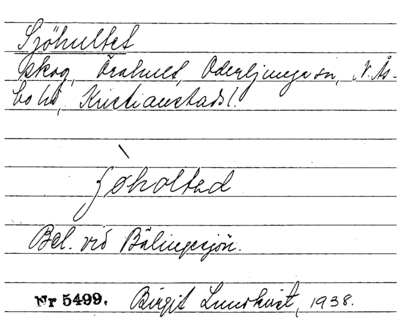 Sjöhultet
skog, Örahult, Oderljunga sn, N. Ås-
bo hd, Kristianstads l.
ʃøholtəd
Bel. vid Bälingesjön.
Nr 5499. Birgit Lundkvist, 1938.